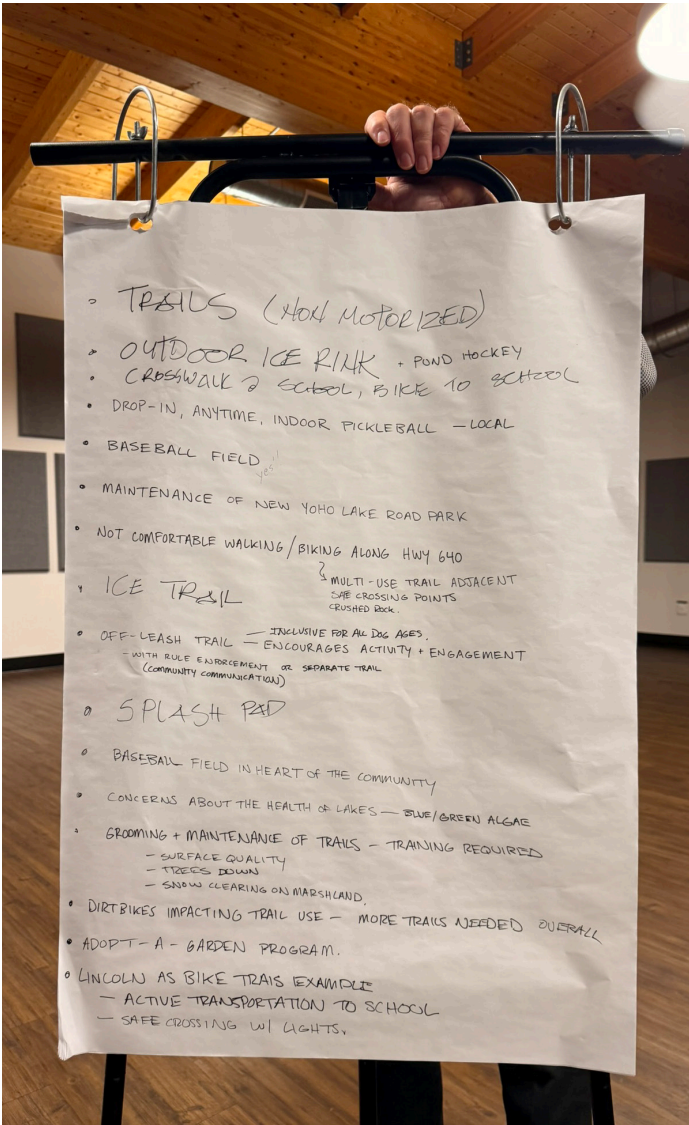 • TRAILS (NON MOTORIZED)
• OUTDOOR ICE RINK + POND HOCKEY
• CROSSWALK @ SCHOOL, BIKE TO SCHOOL
• DROP-IN, ANYTIME, INDOOR PICKLEBALL — LOCAL
• BASEBALL FIELD
yes!!
• MAINTENANCE OF NEW YOHO LAKE ROAD PARK
• NOT COMFORTABLE WALKING/BIKING ALONG HWY 640
MULTI-USE TRAIL ADJACENT
SAFE CROSSING POINTS
CRUSHED ROCK.
• ICE TRAIL
• OFF-LEASH TRAIL — INCLUSIVE FOR ALL DOG AGES.
— ENCOURAGES ACTIVITY + ENGAGEMENT
- WITH RULE ENFORCEMENT OR SEPARATE TRAIL
(COMMUNITY COMMUNICATION)
• SPLASH PAD
• BASEBALL FIELD IN HEART OF THE COMMUNITY
• CONCERNS ABOUT THE HEALTH OF LAKES — BLUE/GREEN ALGAE
• GROOMING + MAINTENANCE OF TRAILS — TRAINING REQUIRED
— SURFACE QUALITY
— TREES DOWN
— SNOW CLEARING ON MARSHLAND.
• DIRTBIKES IMPACTING TRAIL USE — MORE TRAILS NEEDED OVERALL
• ADOPT-A-GARDEN PROGRAM.
• LINCOLN AS BIKE TRAIS EXAMPLE
— ACTIVE TRANSPORTATION TO SCHOOL
— SAFE CROSSING W/ LIGHTS.